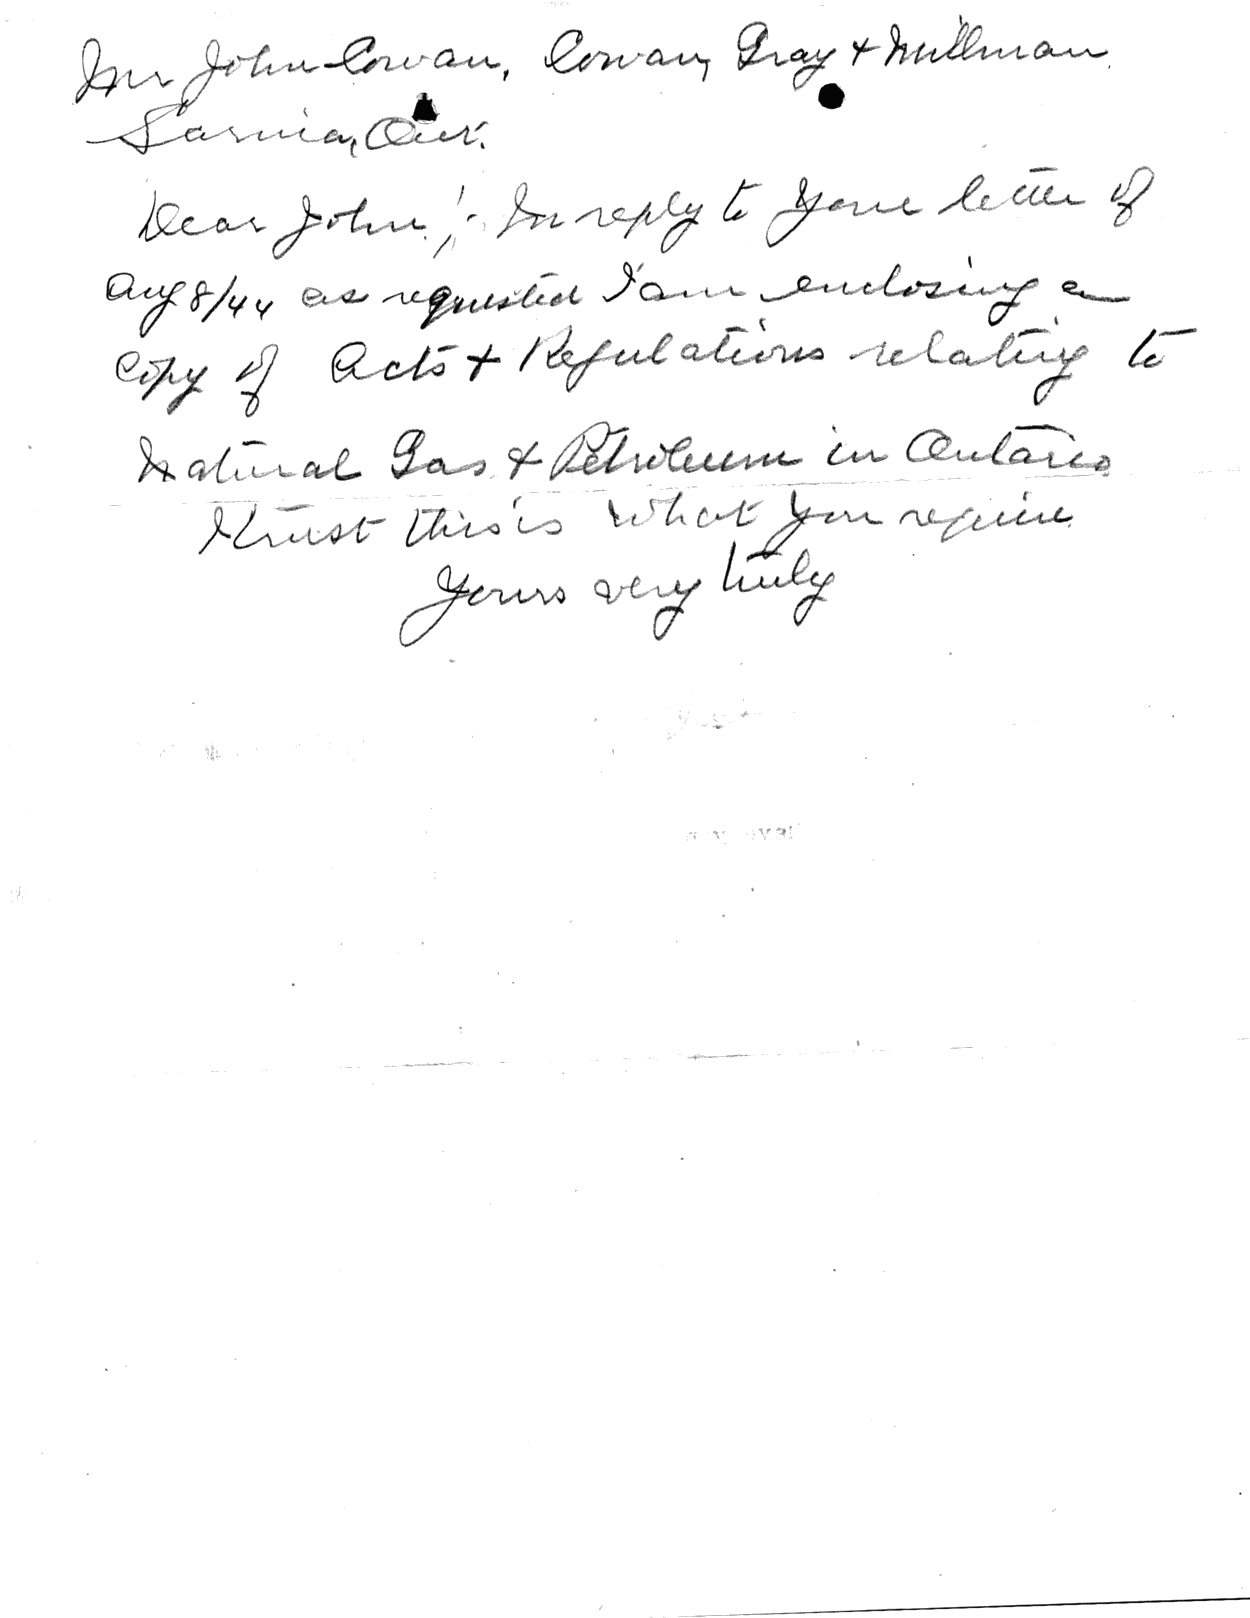 Mr John Cowan, Cowan, Gray & Millman
Sarnia, Ont.
Dear John:- In reply to your letter of
Aug 8/44 as requested I am enclosing a
Copy of Acts & Regulations relating to
Natural Gas & Petroleum in Ontario
I trust this is what you require.
Yours very truly